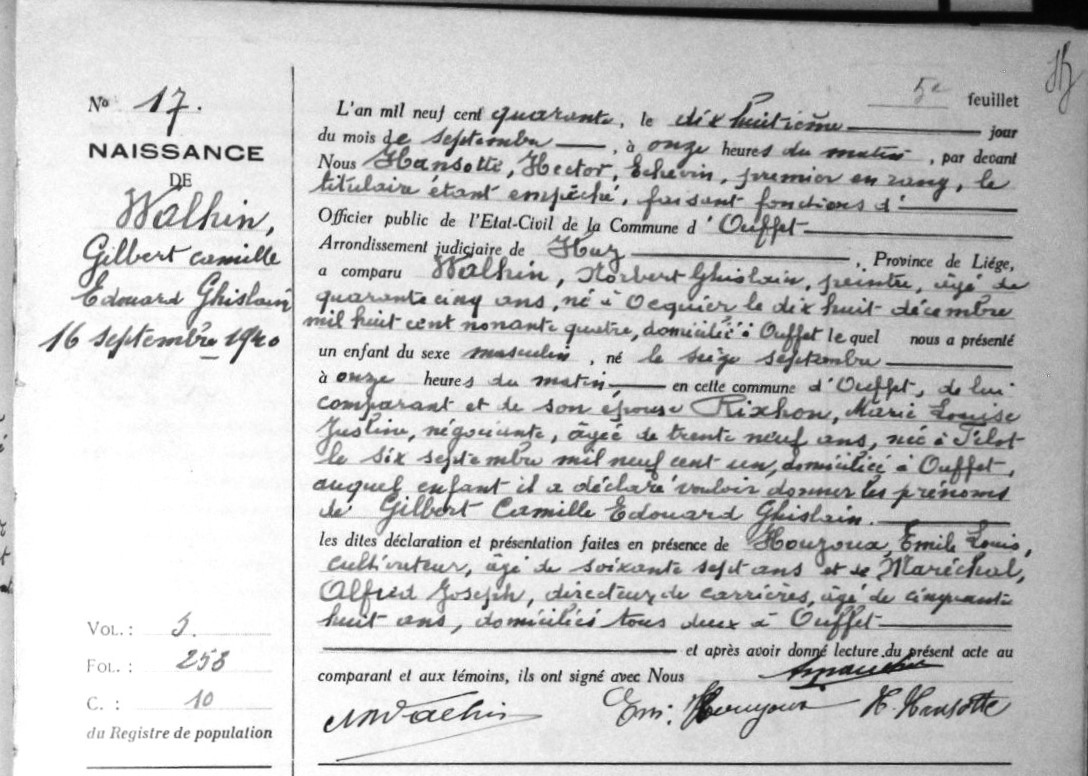 5e feuillet
No 17.
NAISSANCE
DE
Walhin,
Gilbert Camille
Edouard Ghislain
16 septembre 1940
L'an mil neuf cent quarante, le dix huitième jour
du mois de septembre, à onze heures du matin, par devant
Nous Hansotte, Hector, Echevin, premier en rang, le
titulaire étant empêché, faisant fonctions d'
Officier public de l'Etat-Civil de la Commune d'Ouffet
Arrondissement judiciaire de Huy, Province de Liége,
a comparu Walhin, Norbert Ghislain, peintre, âgé de
quarante cinq ans, né à Ocquier le dix huit décembre
mil huit cent nonante quatre, domicilié à Ouffet le quel nous a présenté
un enfant du sexe masculin, né le seize septembre
à onze heures du matin, en cette commune d'Ouffet, de lui
comparant et de son épouse Rixhon, Marie Louise
Justine, négociante, âgée de trente neuf ans, née à Filot
le six septembre mil neuf cent un, domiciliée à Ouffet,
auquel enfant il a déclaré vouloir donner les prénoms
de Gilbert Camille Edouard Ghislain.
les dites déclaration et présentation faites en présence de Houyoux, Emile Louis,
cultivateur, âgé de soixante sept ans et de Maréchal,
Alfred Joseph, directeur de carrières, âgé de cinquante
huit ans, domiciliés tous deux à Ouffet
et après avoir donné lecture du présent acte au
comparant et aux témoins, ils ont signé avec Nous
NWalhin Em: Houyoux H. Hansotte
VOL.: 5.
FOL.: 258
C. : 10
du Registre de population